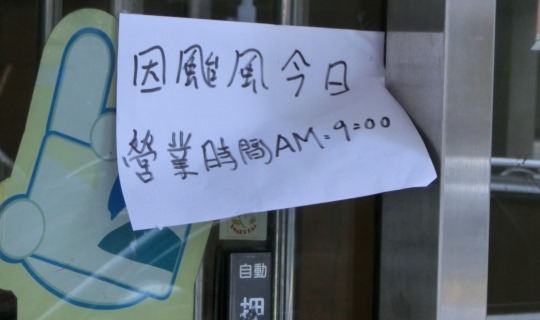 因颱風今日
營業時間AM:9:00
自動